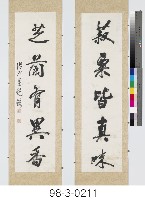 菽粟皆真味
芝蘭有異香
98-3-0211